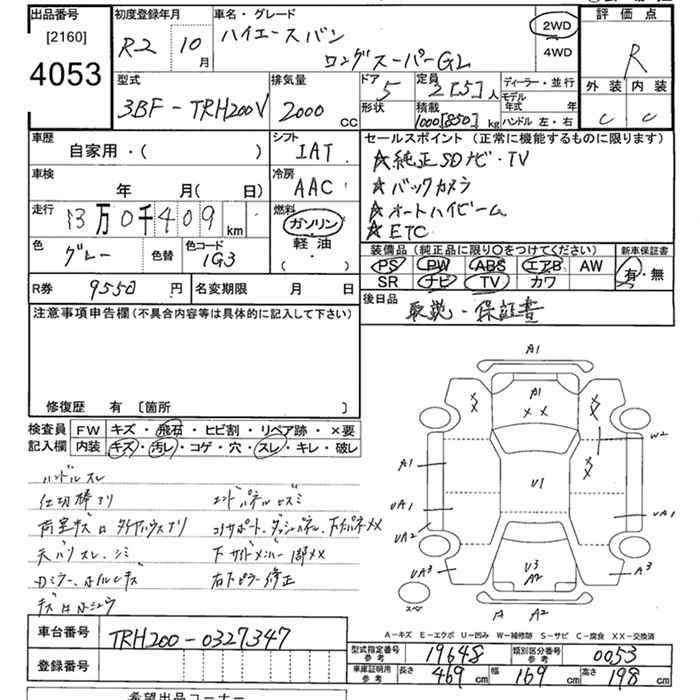 出品番号
[2160]
4053
初度登録年月
R2 10月
車名・グレード
ハイエースバン
ロングスーパーGL
2WD
4WD
評価点
R
外装 内装
C C
型式
3BF-TRH200V
排気量
2000 CC
ドア
5
形状
定員
2[5]人
積載
1000[850]kg
ディーラー・並行
モデル年式 年
ハンドル 左・右
車歴
自家用・( )
車検
年 月( 日)
走行
13万0千409km
色
グレー
色替
色コード
1G3
シフト
IAT
冷房
AAC
燃料
ガソリン
軽油
( ・ )
セールスポイント(正常に機能するものに限ります)
☆純正SDナビ・TV
☆バックカメラ
☆オートハイビーム
☆ETC
装備品(純正品に限り○をつけてください)
PS PW ABS エアB AW
SR ナビ TV カワ
新車保証書
有・無
R券 9550円
名変期限 月 日
後日品
取説・保証書
注意事項申告欄(不具合内容等は具体的に記入して下さい)
修復歴 有 〔箇所 〕
検査員記入欄
FW キズ・飛石・ヒビ割・リペア跡・×要
内装 キズ・汚レ・コゲ・穴・スレ・キレ・破レ
ハンドルスレ
仕切棒アリ
荷室キズロ タイヤハウスアリ
天バリスレ、シミ
エンドパネルヒズミ
コアサポート、
下サイドメンバー1部××
右下ピラー修正
A1
A1
××
××
××
××
W2
A1
U1
UA1
UA1
UA2
UA3
U3
A2
A3
A2
スペア
A-キズ E-エクボ U-凹み W-補修跡 S-サビ C-腐食 XX-交換済
車台番号
TRH200-0327347
登録番号
型式指定番号参考
19648
類別区分番号参考
0053
車庫証明用参考
長さ 469cm
幅 169cm
高さ 198cm
希望出品コーナー